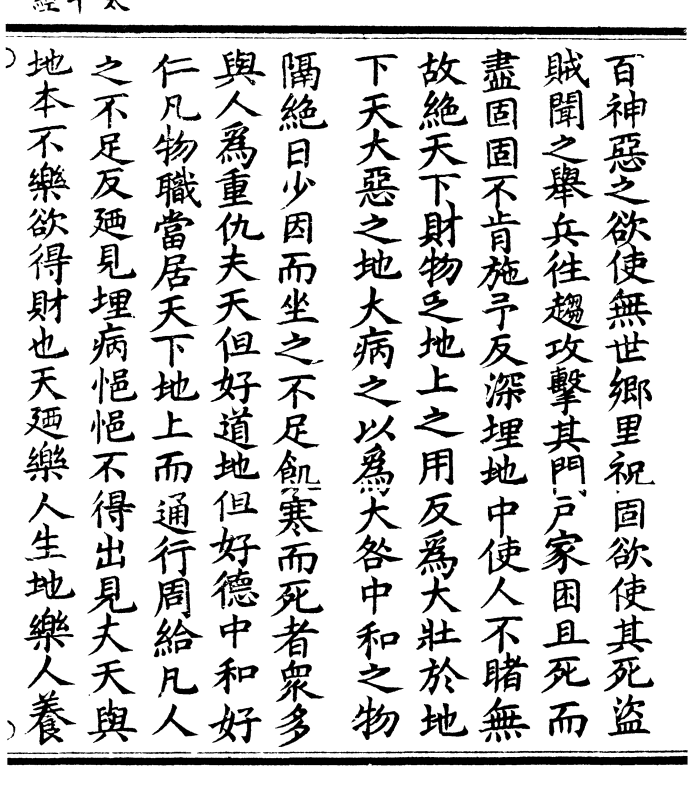 百神惡之欲使無世鄉里祝固欲使其死盜
賊聞之舉兵往趨攻擊其門戶家困且死而
盡固固不肯施予反深埋地中使人不睹無
故絶天下財物乏地上之用反爲大壯於地
下天大惡之地大病之以爲大咎中和之物
隔絶日少因而坐之不足飢寒而死者衆多
與人爲重仇夫天但好道地但好德中和好
仁凡物職當居天下地上而通行周給凡人
之不足反廼見埋病悒悒不得出見夫天與
地本不樂欲得財也天廼樂人生地樂人養